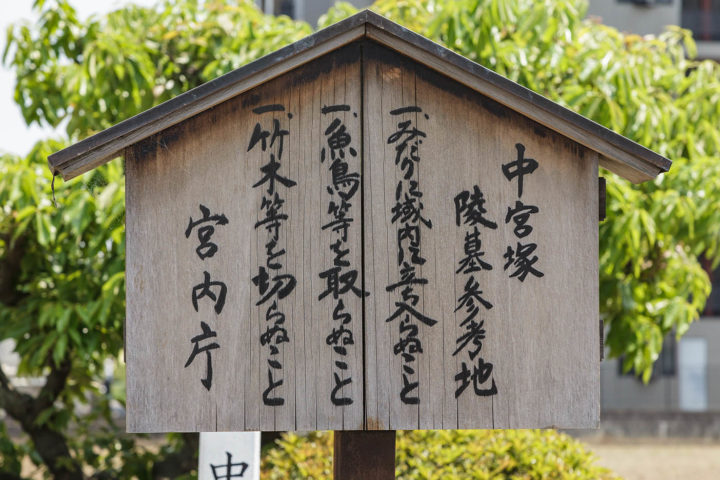 中宮塚
陵墓参考地
一、みだりに域内に立ち入らぬこと
一、魚鳥等を取らぬこと
一、竹木等を切らぬこと
宮内庁
中